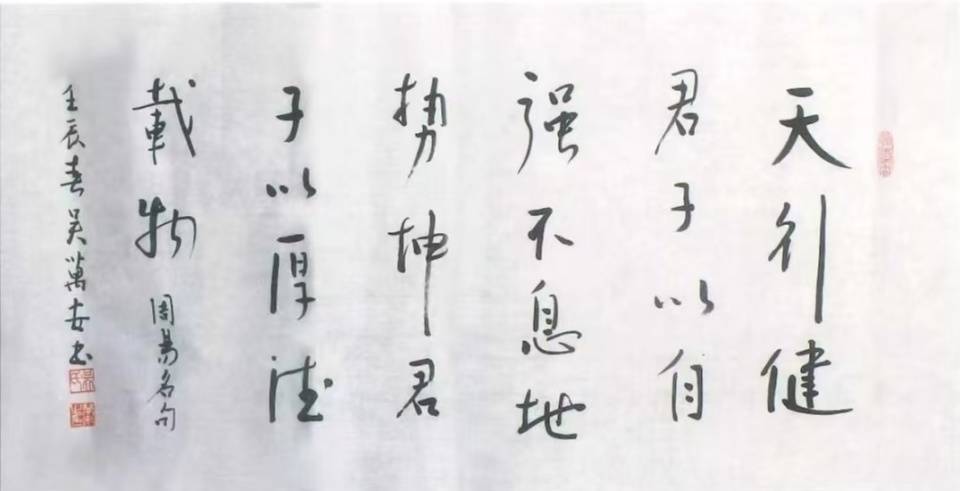 天行健
君子以自
强不息地
势坤君
子以厚德
载物 周易名句
壬辰春吴萬安书